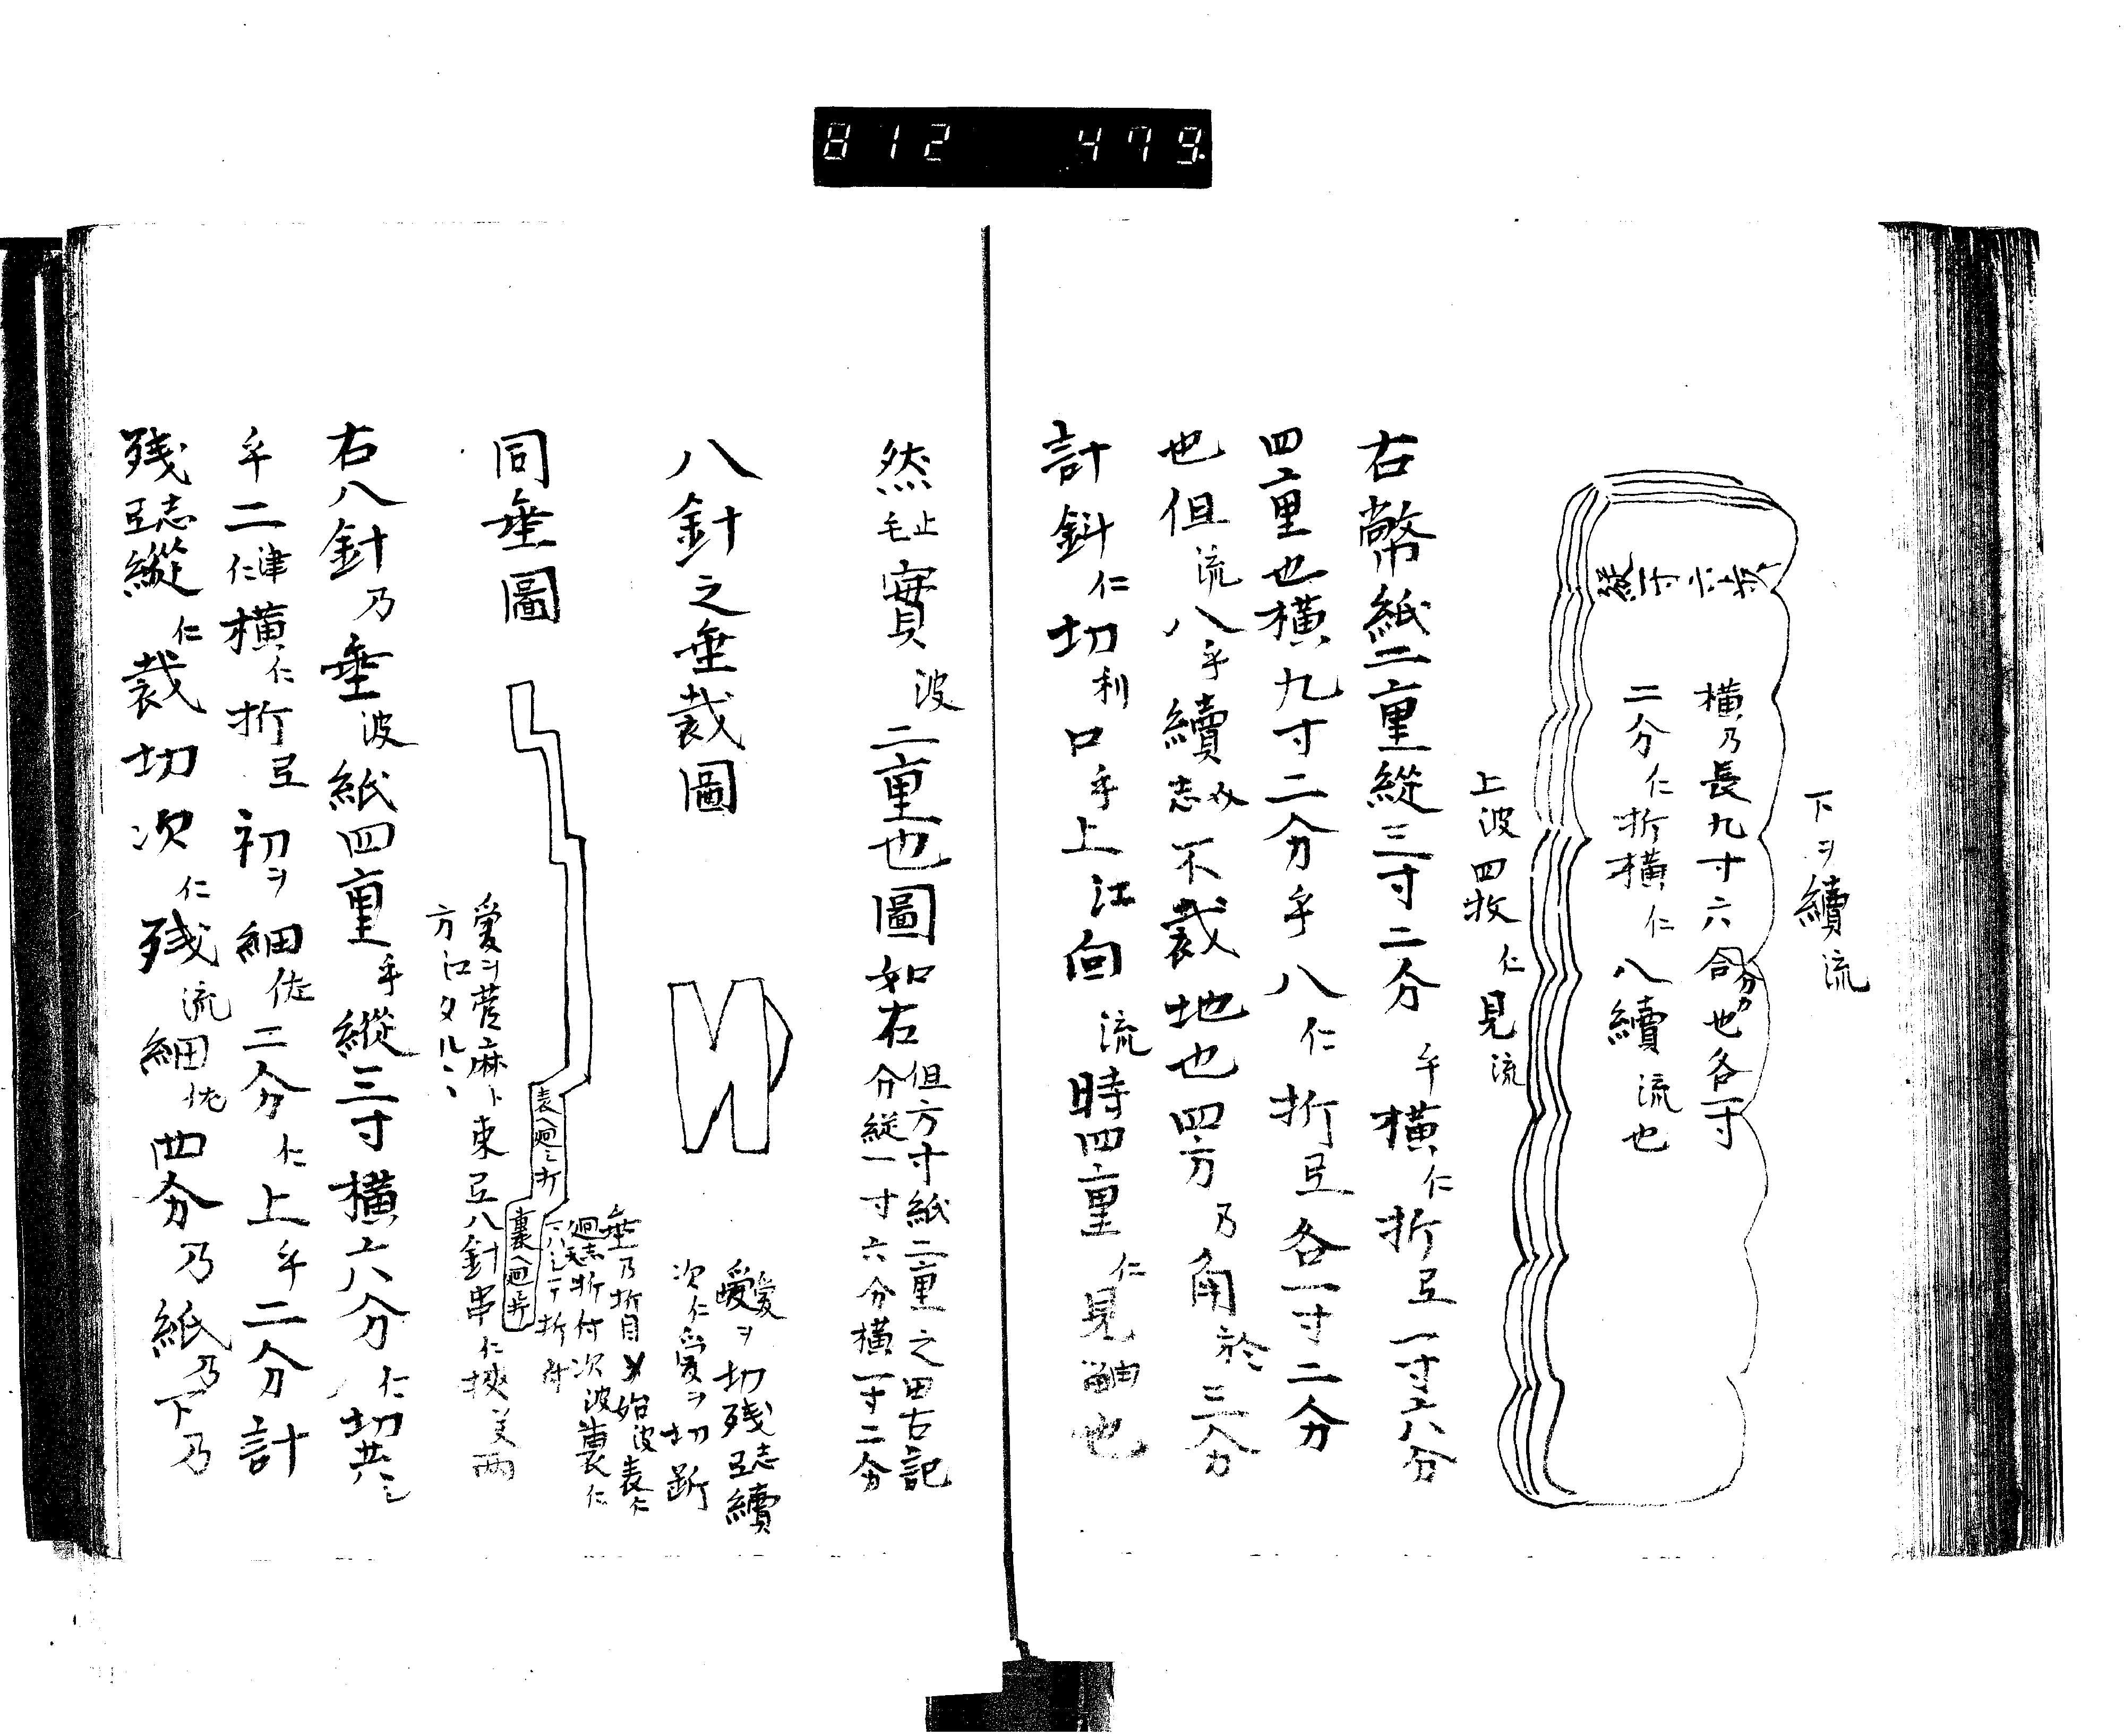 812 479
下ヲ續流
縱一寸六分
横乃長九寸六分合也各一寸
二分仁折横仁八續流也
上波四枚仁見流
右幣紙二重縱三寸二分乎横仁折弖一寸六分
四重也横九寸二分乎八仁折弖各一寸二分
也但流八乎續志不裁地也四方乃角於三分
計斜仁切利口乎上江向流時四重仁見由也
然毛止實波二重也圖如右
但方寸紙二重之由古記
分縱一寸六分横一寸二分
八針之垂裁圖
愛ヲ切殘弖志續
次仁愛ヲ切斷
同垂圖
表ヘ廻シ折
裏ヘ廻シ折
垂乃折目始波表仁
廻志折付次波裏仁
愛ヲ菅麻ト束弖八針串仁挾
方江タルヽ
右八針乃垂波紙四重乎縱三寸横六分仁切
乎二津仁横仁折弖初ヲ細佐二分仁上乎二分計
殘弖志縱仁裁切次仁殘流細佐四分乃紙乃下乃